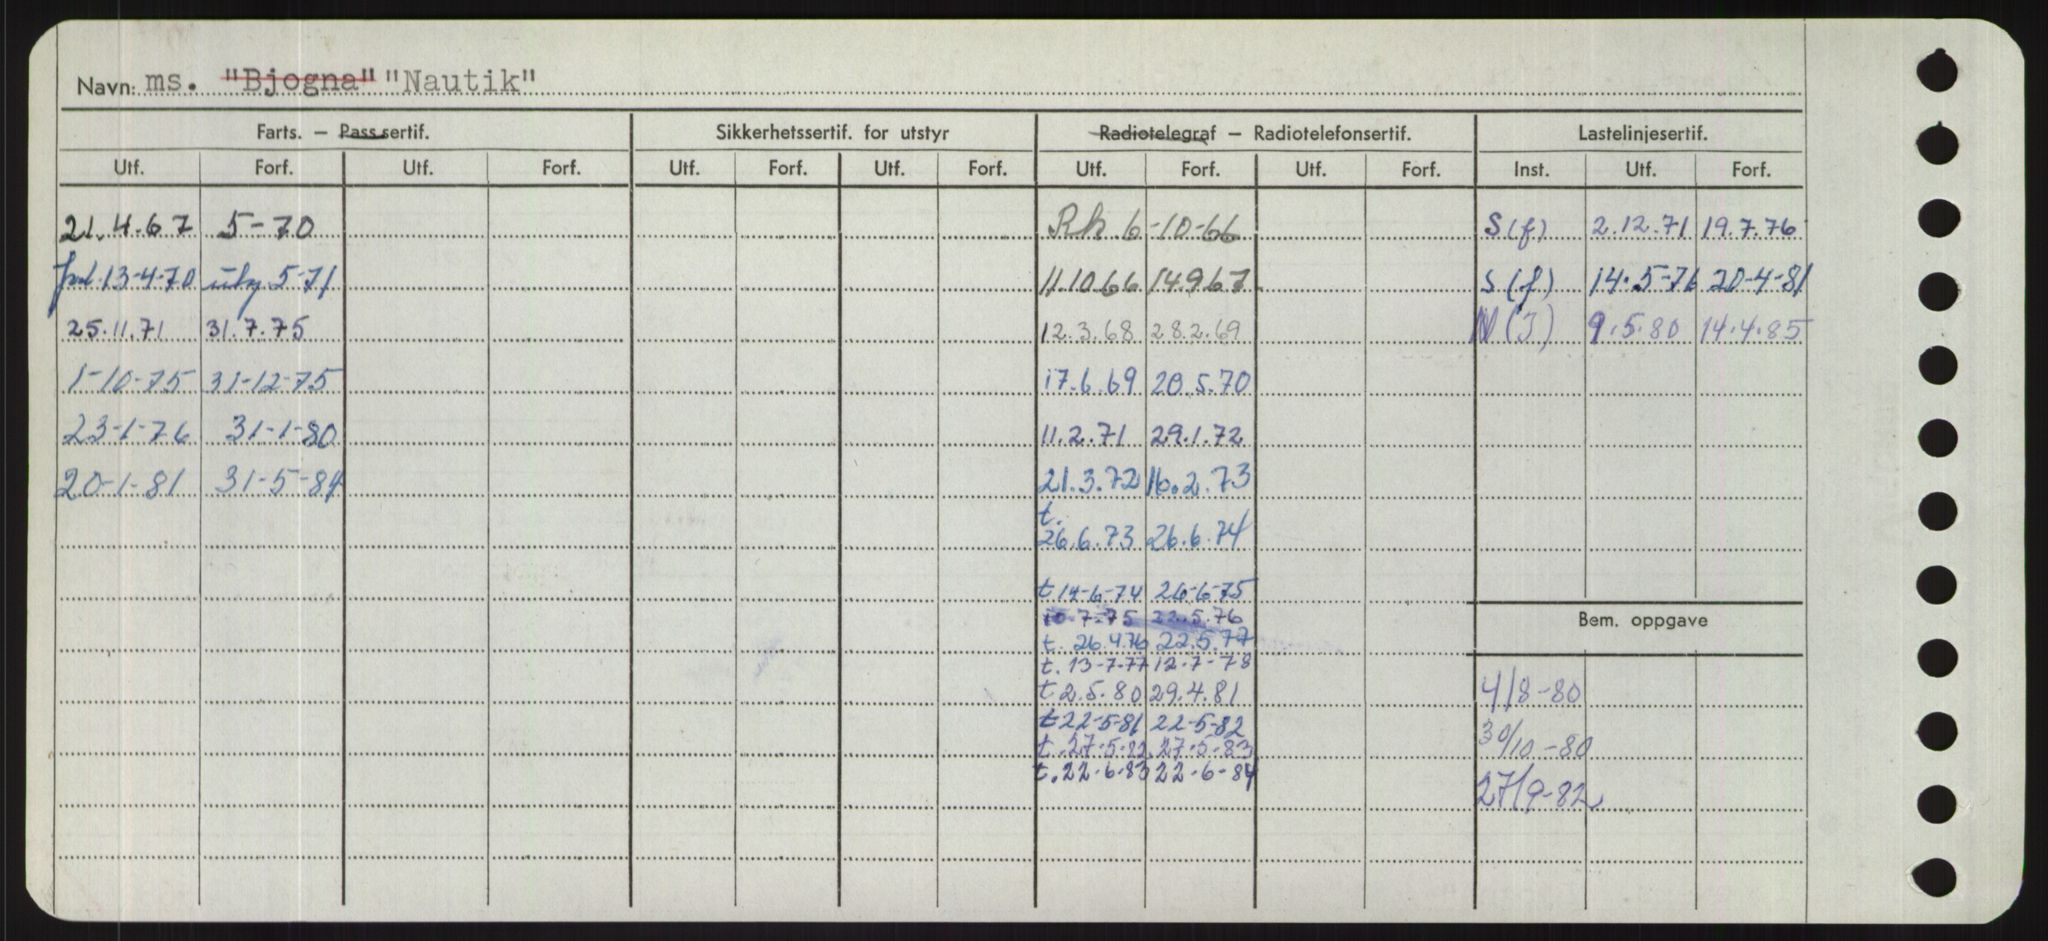 Navn: ms. "Bjogna" "Nautik"
Farts. – Passsertif. Sikkerhetssertif. for utstyr Radiotelegraf – Radiotelefonsertif. Lastelinjesertif.
Utf. Forf. Utf. Forf. Utf. Forf. Utf. Forf. Utf. Forf. Utf. Forf. Inst. Utf. Forf.
21.4.67 5-70 Rk 6-10-66 S(f) 2.12.71 19.7.76
13-4-70 5-71 11.10.66 14.9.67 S(f) 14.5-76 20-4-81
25.11.71 31.7.75 12.3.68 28.2.69 N(J) 9.5.80 14.4.85
1-10-75 31-12-75 17.6.69 20.5.70
23-1-76 31-1-80 11.2.71 29.1.72
20-1-81 31-5-84 21.3.72 16.2.73
t.
26.6.73 26.6.74
t 14-6-74 26-6-75
10-7-75 22.5.76 Bem. oppgave
t. 26.4.76 22.5.77
t. 13-7-77 12-7-78
t 2.5.80 29.4.81 4/8-80
t 22-5-81 22-5-82
t. 27-5-82 27-5-83 30/10-80
t. 22-6-83 22-6-84
27/9-82